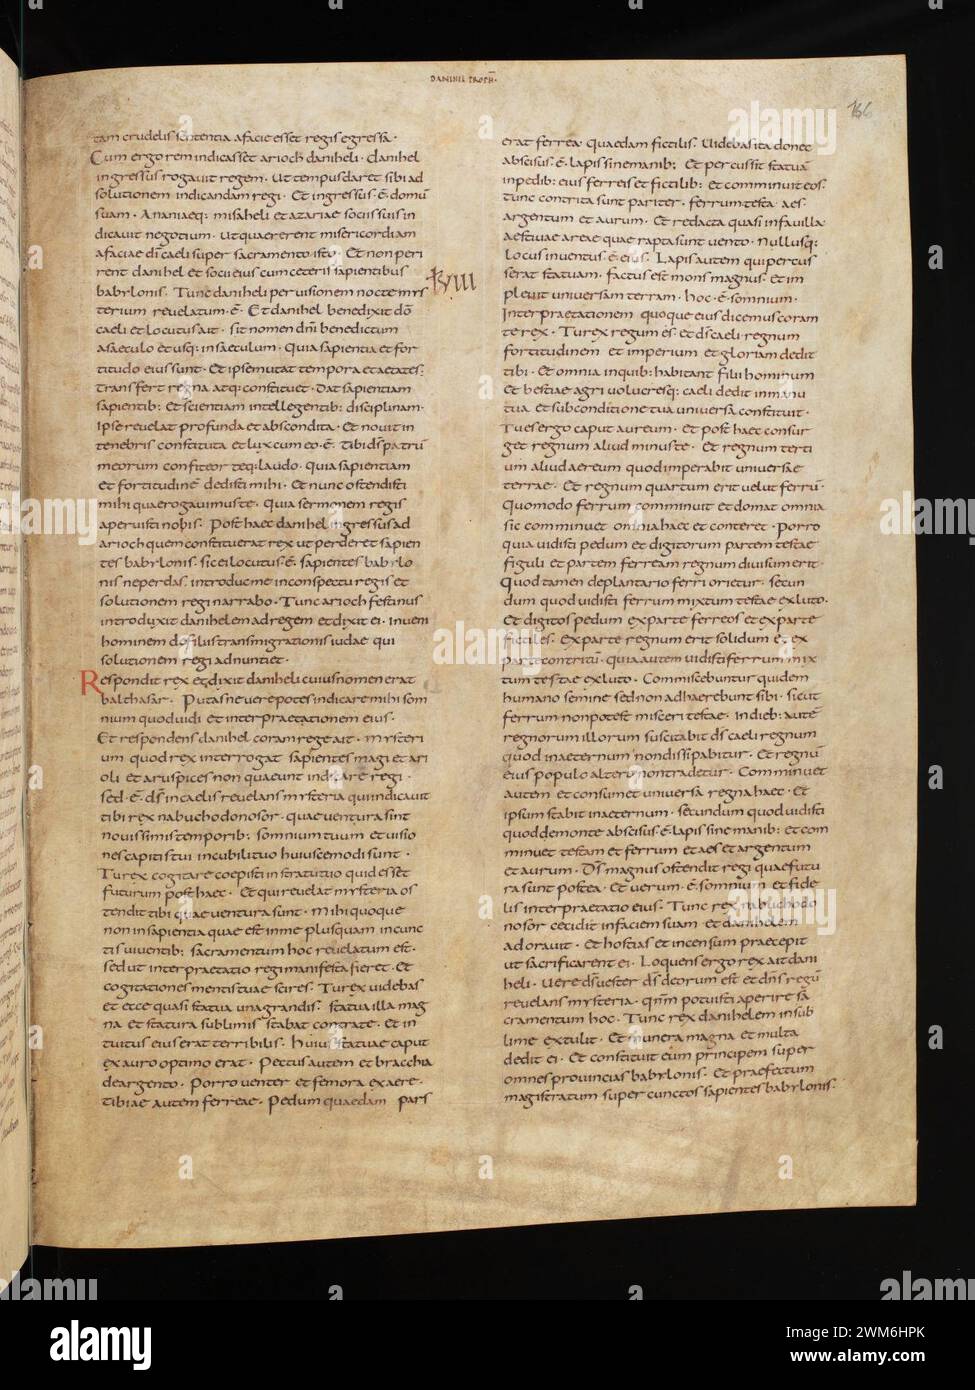 DANIHEL PROPH̄·
166
tam crudelis sententia a facie esset regis egressa·
Cum ergo rem indicasset arioch daniheli· danihel
ingressus rogavit regem· ut tempus daret sibi ad
solutionem indicandam regi· Et ingressus· ē· domū
suam· Ananiaeq: misaheli et azariae sociis suis in
dicauit negotium· ut quaererent misericordiam
a facie dī caeli super sacramento isto· Et non peri
rent danihel et socii eius cum ceteris sapientibus
babylonis· Tunc daniheli per visionem nocte mys
terium reuelatum· ē· Et danihel benedixit dō
caeli et locutus ait· sit nomen dn̄i benedictum
a saeculo et usq: in saeculum· Quia sapientia et for
titudo eius sunt· Et ipse mutat tempora et aetates:
transfert regna atq: constituet· Dat sapientiam
sapientib: Et scientiam intellegentib: disciplinam·
Ipse reuelat profunda et abscondita· Et nouit in
tenebris constituta et lux cum eo· ē· Tibi ds̄ patrū
meorum confiteor teq: laudo· quia sapientiam
et fortitudinē dedisti mihi· Et nunc ostendisti
mihi quae rogauimus te· Quia sermonem regis
aperuisti nobis· Post haec danihel ingressus ad
arioch quem constituerat rex ut perderet sapien
tes babylonis· sic ei locutus· ē· sapientes babylo
nis ne perdas· introduc me in conspectu regis et
solutionem regi narrabo· Tunc arioch festinus
introduxit danihelem ad regem et dixit ei· inueni
hominem de filiis transmigrationis iudae qui
solutionem regi adnuntiet·
Respondit rex et dixit daniheli cuius nomen erat
balthasar· Putasne vere potes indicare mihi som
nium quod uidi et interpraetationem eius·
Et respondens danihel coram rege ait· mysteri
um quod rex interrogat sapientes magi et ari
oli et aruspices non quaeunt indicare regi·
sed· ē· ds̄ in caelis reuelans mysteria qui indicauit
tibi rex nabuchodonosor· quae uentura sint
nouissimis temporib: somnium tuum et uisio
nes capitis tui in cubili tuo huiuscemodi sunt·
Tu rex cogitare coepisti in stratu tuo quid esset
futurum post haec· Et qui reuelat mysteria os
tendit tibi quae ventura sunt· mihi quoque
non in sapientia quae est in me plus quam in cunc
tis uiuentib: sacramentum hoc reuelatum est·
sed ut interpraetatio regi manifesta fieret· et
cogitationes mentis tuae scires· Tu rex uidebas
et ecce quasi statua una grandis· statua illa mag
na et statura sublimis stabat contra te· Et in
tuitus eius erat terribilis· Huius statuae caput
ex auro optimo erat· Pectus autem et bracchia
de argento· Porro venter et femora ex aere·
tibiae autem ferreae· Pedum quaedam pars
XVIII
erat ferrea· quaedam fictilis· Uidebas ita donec
abscisus· ē· lapis sine manib: Et percussit statuā
in pedib: eius ferreis et fictilib: et comminuit eos·
tunc contrita sunt pariter· ferrum· testa· aes·
argentum et aurum· Et redacta quasi in fauilla
aestiuae areae quae rapta sunt vento· nullusq:
locus inuentus· ē· eis· Lapis autem qui percus
serat statuam· factus est mons magnus· et im
pleuit uniuersam terram· hoc· ē· somnium·
Interpraetationem quoque eius dicemus coram
te rex· Tu rex regum es· et ds̄ caeli regnum
fortitudinem et imperium et gloriam dedit
tibi· Et omnia in quib: habitant filii hominum
Et bestiae agri volucresq: caeli dedit in manu
tua et sub conditione tua universa constituit·
Tu es ergo caput aureum· et post haec consur
get regnum aliud minus te· Et regnum terti
um aliud aereum quod imperabit universae
terrae· Et regnum quartum erit velut ferrū·
Quomodo ferrum comminuit et domat omnia
sic comminuet omnia haec et conteret· Porro
quia uidisti pedum et digitorum partem testae
figuli et partem ferream regnum divisum erit·
Quod tamen de plantario ferri orietur· secun
dum quod uidisti ferrum mixtum testae ex luto·
Et digitos pedum ex parte ferreos et ex parte
fictiles· ex parte regnum erit solidum et ex
parte contritū· quia autem uidisti ferrum mix
tum testae ex luto· Commiscebuntur quidem
humano semine sed non adhaerebunt sibi· sicut
ferrum non potest misceri testae· In dieb: autē
regnorum illorum suscitabit ds̄ caeli regnum
quod in aeternum non dissipabitur· Et regnū
eius populo altero non tradetur· Comminuet
autem et consumet universa regna haec· Et
ipsum stabit in aeternum· secundum quod uidisti
quod de monte abscisus· ē· lapis sine manib: et com
minuet testam et ferrum et aes et argentum
et aurum· Ds̄ magnus ostendit regi quae futu
ra sunt postea· Et verum· ē· somnium et fide
lis interpraetatio eius· Tunc rex nabuchodo
nosor cecidit in faciem suam et danihelem
adorauit· Et hostias et incensum praecepit
ut sacrificarent ei· Loquens ergo rex ait dani
heli· Uere ds̄ vester ds̄ deorum est et dn̄s regū
reuelans mysteria· qnm̄ potuisti aperire sa
cramentum hoc· Tunc rex danihelem in sub
lime extulit· Et munera magna et multa
dedit ei· Et constituit eum principem super
omnes provincias babylonis· Et praefectum
magistratum super cunctos sapientes babylonis·
alamy
Image ID: 2WM6HPK
www.alamy.com